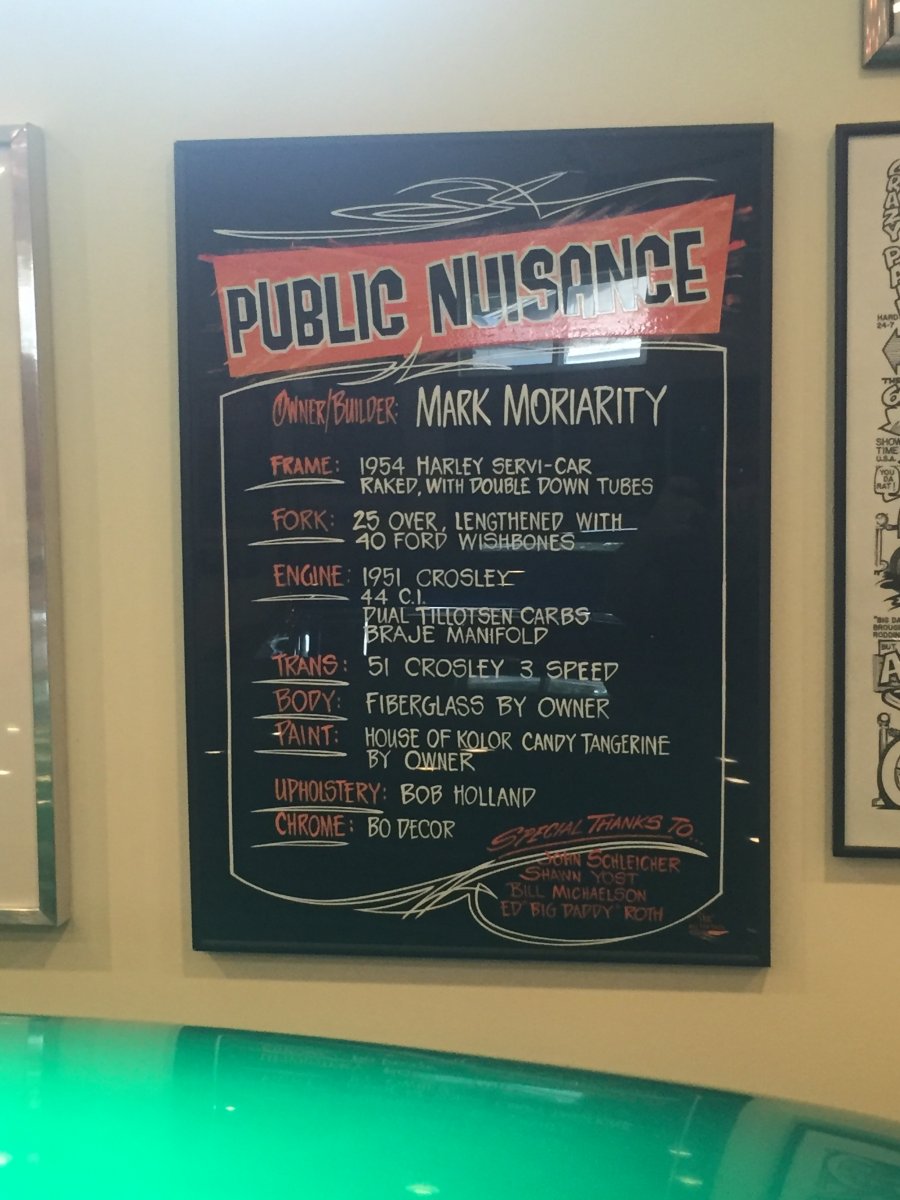 PUBLIC NUISANCE
OWNER/BUILDER: MARK MORIARITY
FRAME: 1954 HARLEY SERVI-CAR
RAKED, WITH DOUBLE DOWN TUBES
FORK: 25 OVER, LENGTHENED WITH
40 FORD WISHBONES
ENGINE: 1951 CROSLEY
44 C.I.
DUAL TILLOTSEN CARBS
BRAJE MANIFOLD
TRANS: 51 CROSLEY 3 SPEED
BODY: FIBERGLASS BY OWNER
PAINT: HOUSE OF KOLOR CANDY TANGERINE
BY OWNER
UPHOLSTERY: BOB HOLLAND
CHROME: BO DECOR
SPECIAL THANKS TO...
JOHN SCHLEICHER
SHAWN YOST
BILL MICHAELSON
ED "BIG DADDY" ROTH
CRAZY
HARD
24-7
SHOW
TIME
U.S.A.
YOU
DA
RAT!
"BIG DA
BROUG
RODDIN
BUT